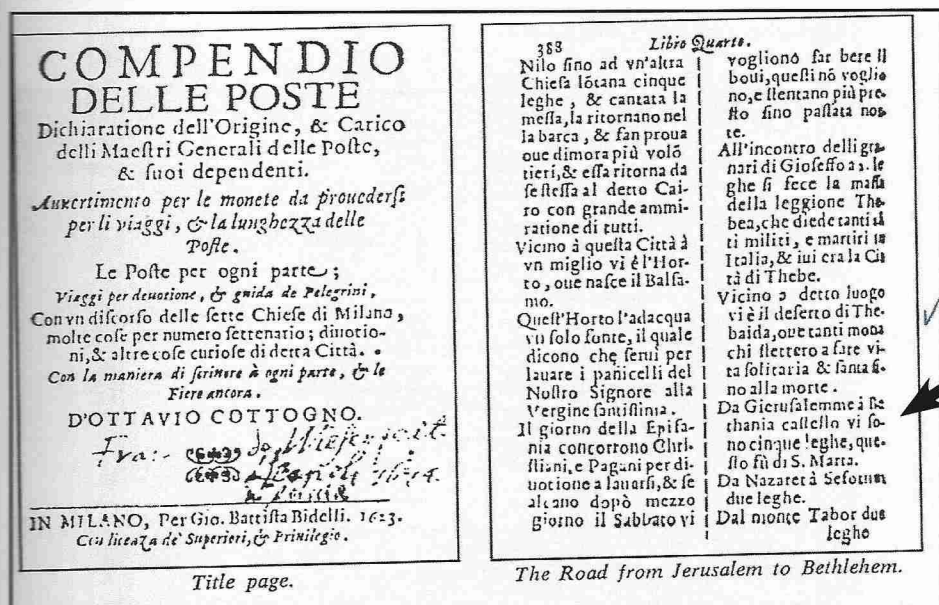 COMPENDIO
DELLE POSTE
Dichiaratione dell'Origine, & Carico
delli Maeſtri Generali delle Poſte,
& ſuoi dependenti.
Auuertimento per le monete da prouederſi
per li viaggi, & la lunghezza delle
Poſte.
Le Poſte per ogni parte;
Viaggi per deuotione, & guida de Pelegrini,
Con vn diſcorſo delle ſette Chieſe di Milano,
molte coſe per numero ſettenario; diuotio-
ni, & altre coſe curioſe di detta Città.
Con la maniera di ſcriuere à ogni parte, & le
Fiere ancora.
D'OTTAVIO COTTOGNO.
Fra:
IN MILANO, Per Gio. Battiſta Bidelli. 1623.
Con licenza de' Superiori, & Priuilegio.
Title page.
388 Libro Quarto.
Nilo ſino ad vn'altra
Chieſa lõtana cinque
leghe, & cantata la
meſſa, la ritornano nel
la barca, & fan proua
oue dimora più volõ
tieri, & eſſa ritorna da
ſe ſteſſa al detto Cai-
ro con grande ammi-
ratione di tutti.
Vicino à queſta Città à
vn miglio vi è l'Hor-
to, oue naſce il Balſa-
mo.
Queſt'Horto l'adacqua
vn ſolo fonte, il quale
dicono che ſeruì per
lauare i panicelli del
Noſtro Signore alla
Vergine ſantiſſima.
Il giorno della Epifa-
nia concorrono Chri-
ſtiani, e Pagani per di-
uotione a lauarſi, & ſe
alcano dopò mezzo
giorno il Sabbato vi
vogliono far bere il
boui, queſti nõ voglio
no, e ſtentano più pre-
ſto ſino paſſata not
te.
All'incontro delli gra
nari di Gioſeffo a le
ghe ſi fece la maſſa
della leggione The
bea, che diede tanti
ti militi, e martiri in
Italia, & iui era la Cit
tà di Thebe.
Vicino a detto luogo
vi è il deſerto di The-
baida, oue tanti mona
chi ſtettero a fare vi-
ta ſolitaria & ſanta ſi-
no alla morte.
Da Gieruſalemme à Be
thania caſtello vi ſo-
no cinque leghe, que-
ſto fù di S. Marta.
Da Nazaret à
due leghe.
Dal monte Tabor due
leghe
The Road from Jerusalem to Bethlehem.